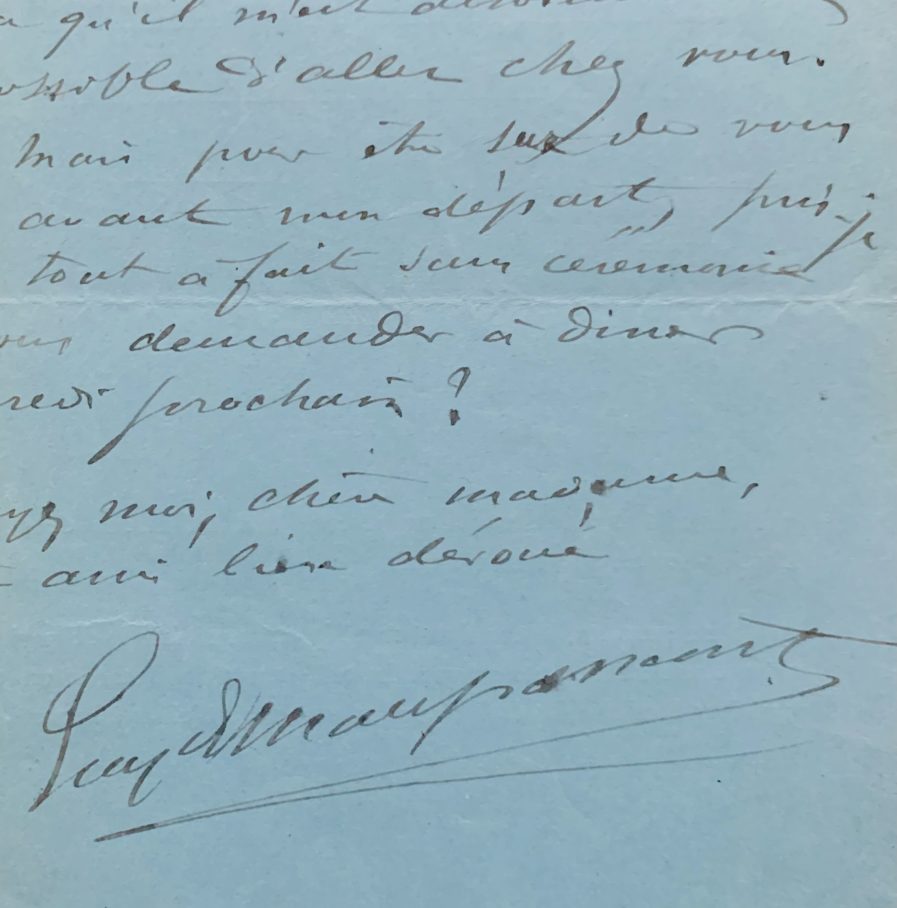 qu'il m'est
possible d'aller chez vous.
Mais pour être sur de vous
avant mon départ, puis-je
tout à fait sans cérémonie
vous demander à diner
redi prochain ?
yez moi, chère madame,
ami bien dévoué
Guy de Maupassant